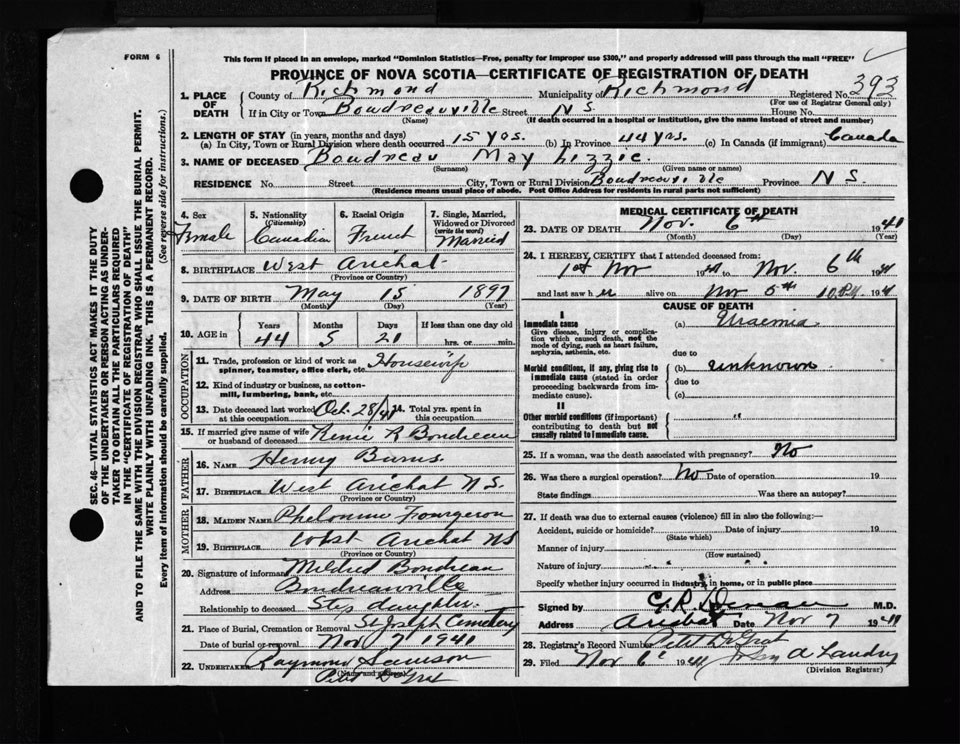 FORM 6
This form if placed in an envelope, marked "Dominion Statistics—Free, penalty for improper use $300," and properly addressed will pass through the mail "FREE"
PROVINCE OF NOVA SCOTIA—CERTIFICATE OF REGISTRATION OF DEATH
1. PLACE OF DEATH County of Richmond Municipality of Richmond Registered No. 393
(For use of Registrar General only)
If in City or Town Boudreauville Street N S. House No.
(Name) (If death occurred in a hospital or institution, give the name instead of street and number)
2. LENGTH OF STAY (in years, months and days)
(a) In City, Town or Rural Division where death occurred 15 yrs. (b) In Province 44 yrs. (c) In Canada (if immigrant) Canada
3. NAME OF DECEASED Boudreau May Lizzie.
(Surname) (Given name or names)
RESIDENCE No. Street City, Town or Rural Division Boudreauville Province N S.
(Residence means usual place of abode. Post Office Address for residents in rural parts not sufficient)
4. Sex Female
5. Nationality (Citizenship) Canadian
6. Racial Origin French
7. Single, Married, Widowed or Divorced (write the word) Married
8. BIRTHPLACE West Arichat
(Province or Country)
9. DATE OF BIRTH May 15 1897
(Month) (Day) (Year)
10. AGE in Years 44 Months 5 Days 21 If less than one day old hrs. or min.
OCCUPATION
11. Trade, profession or kind of work as spinner, teamster, office clerk, etc. Housewife
12. Kind of industry or business, as cotton-mill, lumbering, bank, etc.
13. Date deceased last worked at this occupation Oct. 28/41 14. Total yrs. spent in this occupation
15. If married give name of wife or husband of deceased R Boudreau
FATHER
16. NAME Henry Burns
17. BIRTHPLACE West Arichat N S.
(Province or Country)
MOTHER
18. MAIDEN NAME Fougeron
19. BIRTHPLACE West Arichat NS
(Province or Country)
20. Signature of informant Mildred Boudreau
Address Boudreauville
Relationship to deceased Step daughter.
21. Place of Burial, Cremation or Removal St Joseph Cemetery
Date of burial or removal Nov 7 1941
22. UNDERTAKER Raymond Samson
(Name and address)
Petit De Grat
MEDICAL CERTIFICATE OF DEATH
23. DATE OF DEATH Nov. 6th 1941
(Month) (Day) (Year)
24. I HEREBY CERTIFY that I attended deceased from:
1st Nov 1941 to Nov. 6th 1941
and last saw her alive on Nov 5th 10 P.M. 1941
CAUSE OF DEATH
I
Immediate cause (a) Uraemia
Give disease, injury or complication which caused death, not the mode of dying, such as heart failure, asphyxia, asthenia, etc.
due to
Morbid conditions, if any, giving rise to immediate cause (stated in order proceeding backwards from immediate cause). (b) unknown
due to
(c)
II
Other morbid conditions (if important) contributing to death but not causally related to immediate cause. "
25. If a woman, was the death associated with pregnancy? No
26. Was there a surgical operation? No Date of operation 19
State findings Was there an autopsy?
27. If death was due to external causes (violence) fill in also the following:—
Accident, suicide or homicide? Date of injury 19
(State which)
Manner of injury
(How sustained)
Nature of injury
Specify whether injury occurred in industry, in home, or in public place
Signed by M.D.
Address Arichat Date Nov 7 1941
28. Registrar's Record Number Petit De Grat
29. Filed Nov 6 1941 John A Landry
(Division Registrar)
SEC. 46—VITAL STATISTICS ACT MAKES IT THE DUTY
OF THE UNDERTAKER OR PERSON ACTING AS UNDER-
TAKER TO OBTAIN ALL THE PARTICULARS REQUIRED
IN THE "CERTIFICATE OF REGISTRATION OF DEATH"
AND TO FILE THE SAME WITH THE DIVISION REGISTRAR WHO SHALL ISSUE THE BURIAL PERMIT.
WRITE PLAINLY WITH UNFADING INK. THIS IS A PERMANENT RECORD.
Every item of information should be carefully supplied. (See reverse side for instructions.)